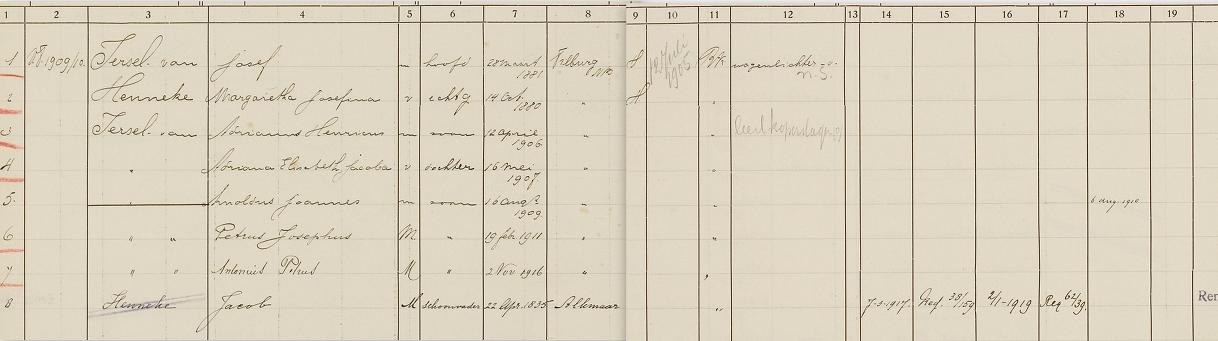 1 2 3 4 5 6 7 8 9 10 11 12 13 14 15 16 17 18 19
1 1909/10 Iersel van Josef m hoofd 28 maart 1881 Tilburg H 12 Juli 1905 R.K.
2 Henneke Margaretha Josefina v echtg 14 Oct. 1880 " H "
3 Iersel van Adrianus Henricus m zoon 12 april 1906 " "
4 " Adriana Elisabeth Jacoba v dochter 16 mei 1907 " "
5. " Arnoldus Joannes m zoon 16 aug. 1909 " " 6 aug. 1910
6 " " Petrus Josephus M " 19 febr. 1911 " "
7 " " Antonius Petrus M " 2 Nov 1916 " "
8 Henneke Jacob M schoonvader 22 Apr. 1835 Alkmaar " 7-3-1917. 38/159 2/1-1919 Reg 62/39.
Ren